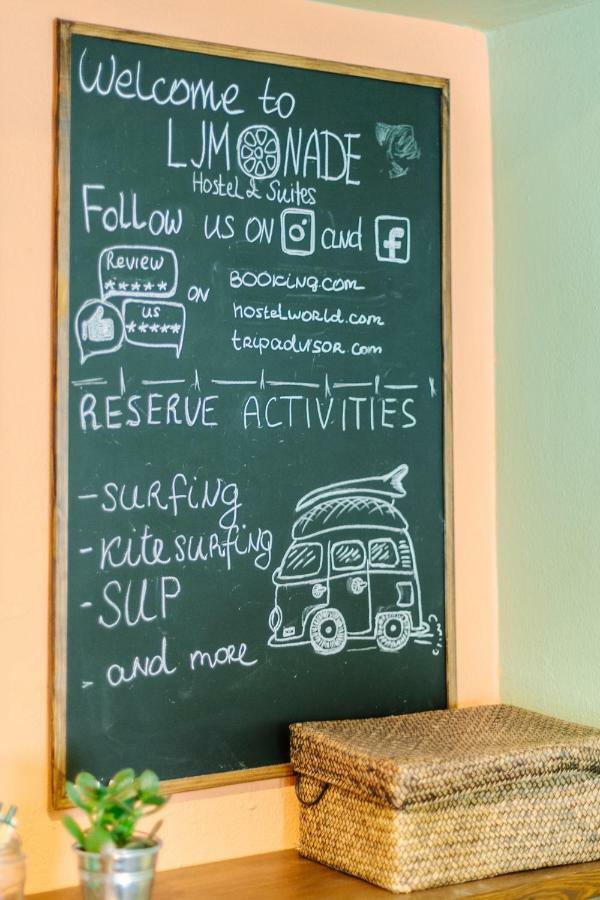 Welcome to
LJMONADE
Hostel & Suites
Follow us on and f
Review
*****
us
*****
ON
BOOKING.COM
hostelworld.com
tripadvisor.com
RESERVE ACTIVITIES
-SURFING
-Kitesurfing
-SUP
- and more